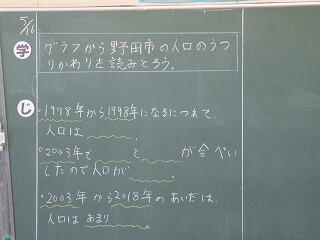 5/16
学
グラフから野田市の人口のうつ
りかわりを読みとろう。
じ
・1978年から1998年になるにつれて
人口は　　　　。
・2003年で　　　と　　　が合ぺい
したので人口が　　　　。
・2003年から2018年のあいだは、
人口はあまり　　　　。